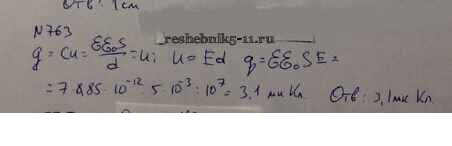 Отв: 1 см
№763
reshebnik5-11.ru
q = cu = εε₀S/d = u; u = Ed q = εε₀SE =
= 7·8,85·10⁻¹²·5·10⁻³·10⁷ = 3,1 мк Кл. Отв: 3,1 мк Кл.